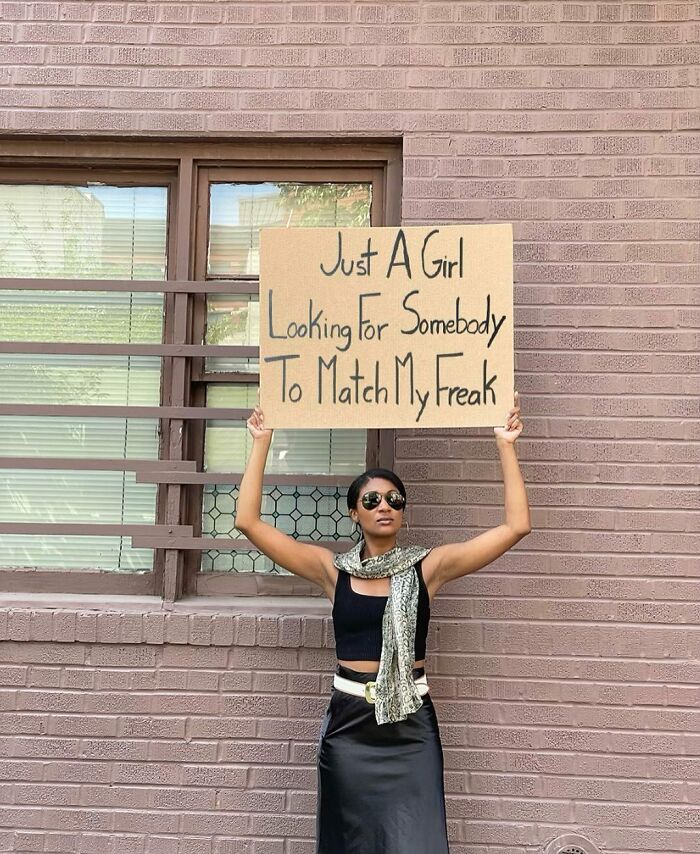 Just A Girl
Looking For Somebody
To Match My Freak